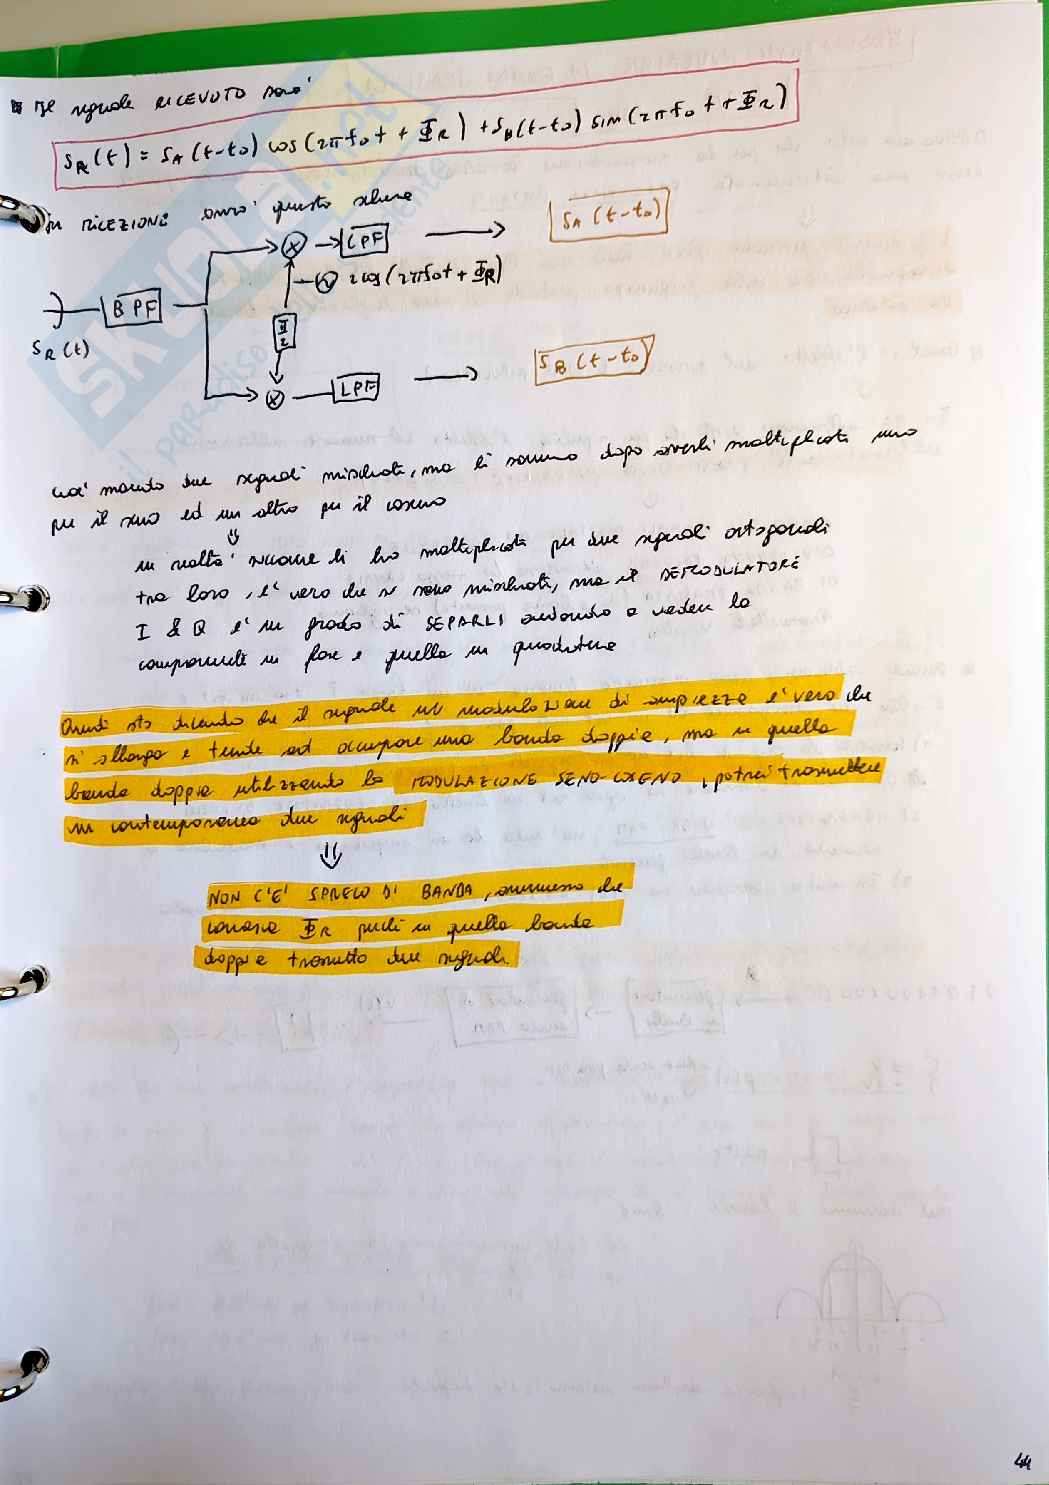 Il segnale RICEVUTO sarà
SR(t) = SA(t-t0) cos(2πf0t + ΦR) + SB(t-t0) sin(2πf0t + ΦR)
In RICEZIONE avrò questo schema
SR(t)
BPF
X
LPF
SA(t-t0)
2cos(2πf0t + ΦR)
π/2
X
LPF
SB(t-t0)
così mando due segnali mischiati, ma li sommo dopo averli moltiplicati uno
per il seno ed un altro per il coseno
⇓
in realtà siccome li ho moltiplicati per due segnali ortogonali
tra loro, è vero che si sono mischiati, ma il DEMODULATORE
I & Q è in grado di SEPARLI andando a vedere la
componente in fase e quella in quadratura
Quindi sto dicendo che il segnale in modulazione di ampiezza è vero che
si allarga e tende ad occupare una banda doppia, ma in quella
banda doppia utilizzando la MODULAZIONE SENO-COSENO, potrei trasmettere
in contemporanea due segnali
⇓
NON C'È SPRECO DI BANDA, ammesso che
conosca ΦR perché in quella banda
doppia trasmetto due segnali.
44
SKUOLA.net
il paradiso dello studente